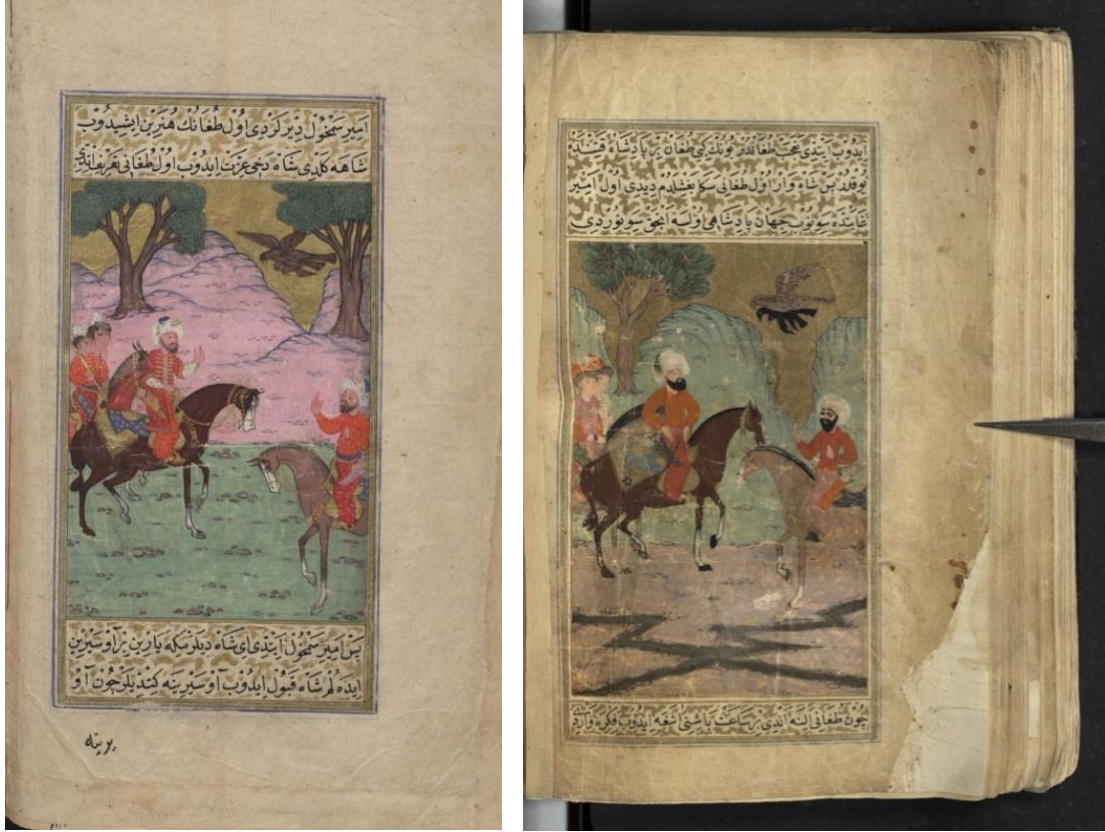 امیر سمخول دیر کردی اول طغانك هنرین ایشیدوب
شاهه کلدی شاه دخی عزت ایدوب اول طغانی تعریف اتدی
پس امیر سمخول ایتدی ای شاه دیلر مکه یارین بر آو سیرین
ایده لم شاه قبول ایدوب آو سیرینه کتدیلر چون آو
یرینه
ایدوب ایتدی عجب طغاندر بونك کبی طغان بر پادشاه قتنده
یوقدر پس شاه وار اول طغانی سکا بغشلدم دیدی اول امیر
غایتده سونوب جهان پادشاهی اولسه انجق سونوردی
چون طغانی الته الدی بر ساعت باشنی اشغه ایدوب فکره واردی